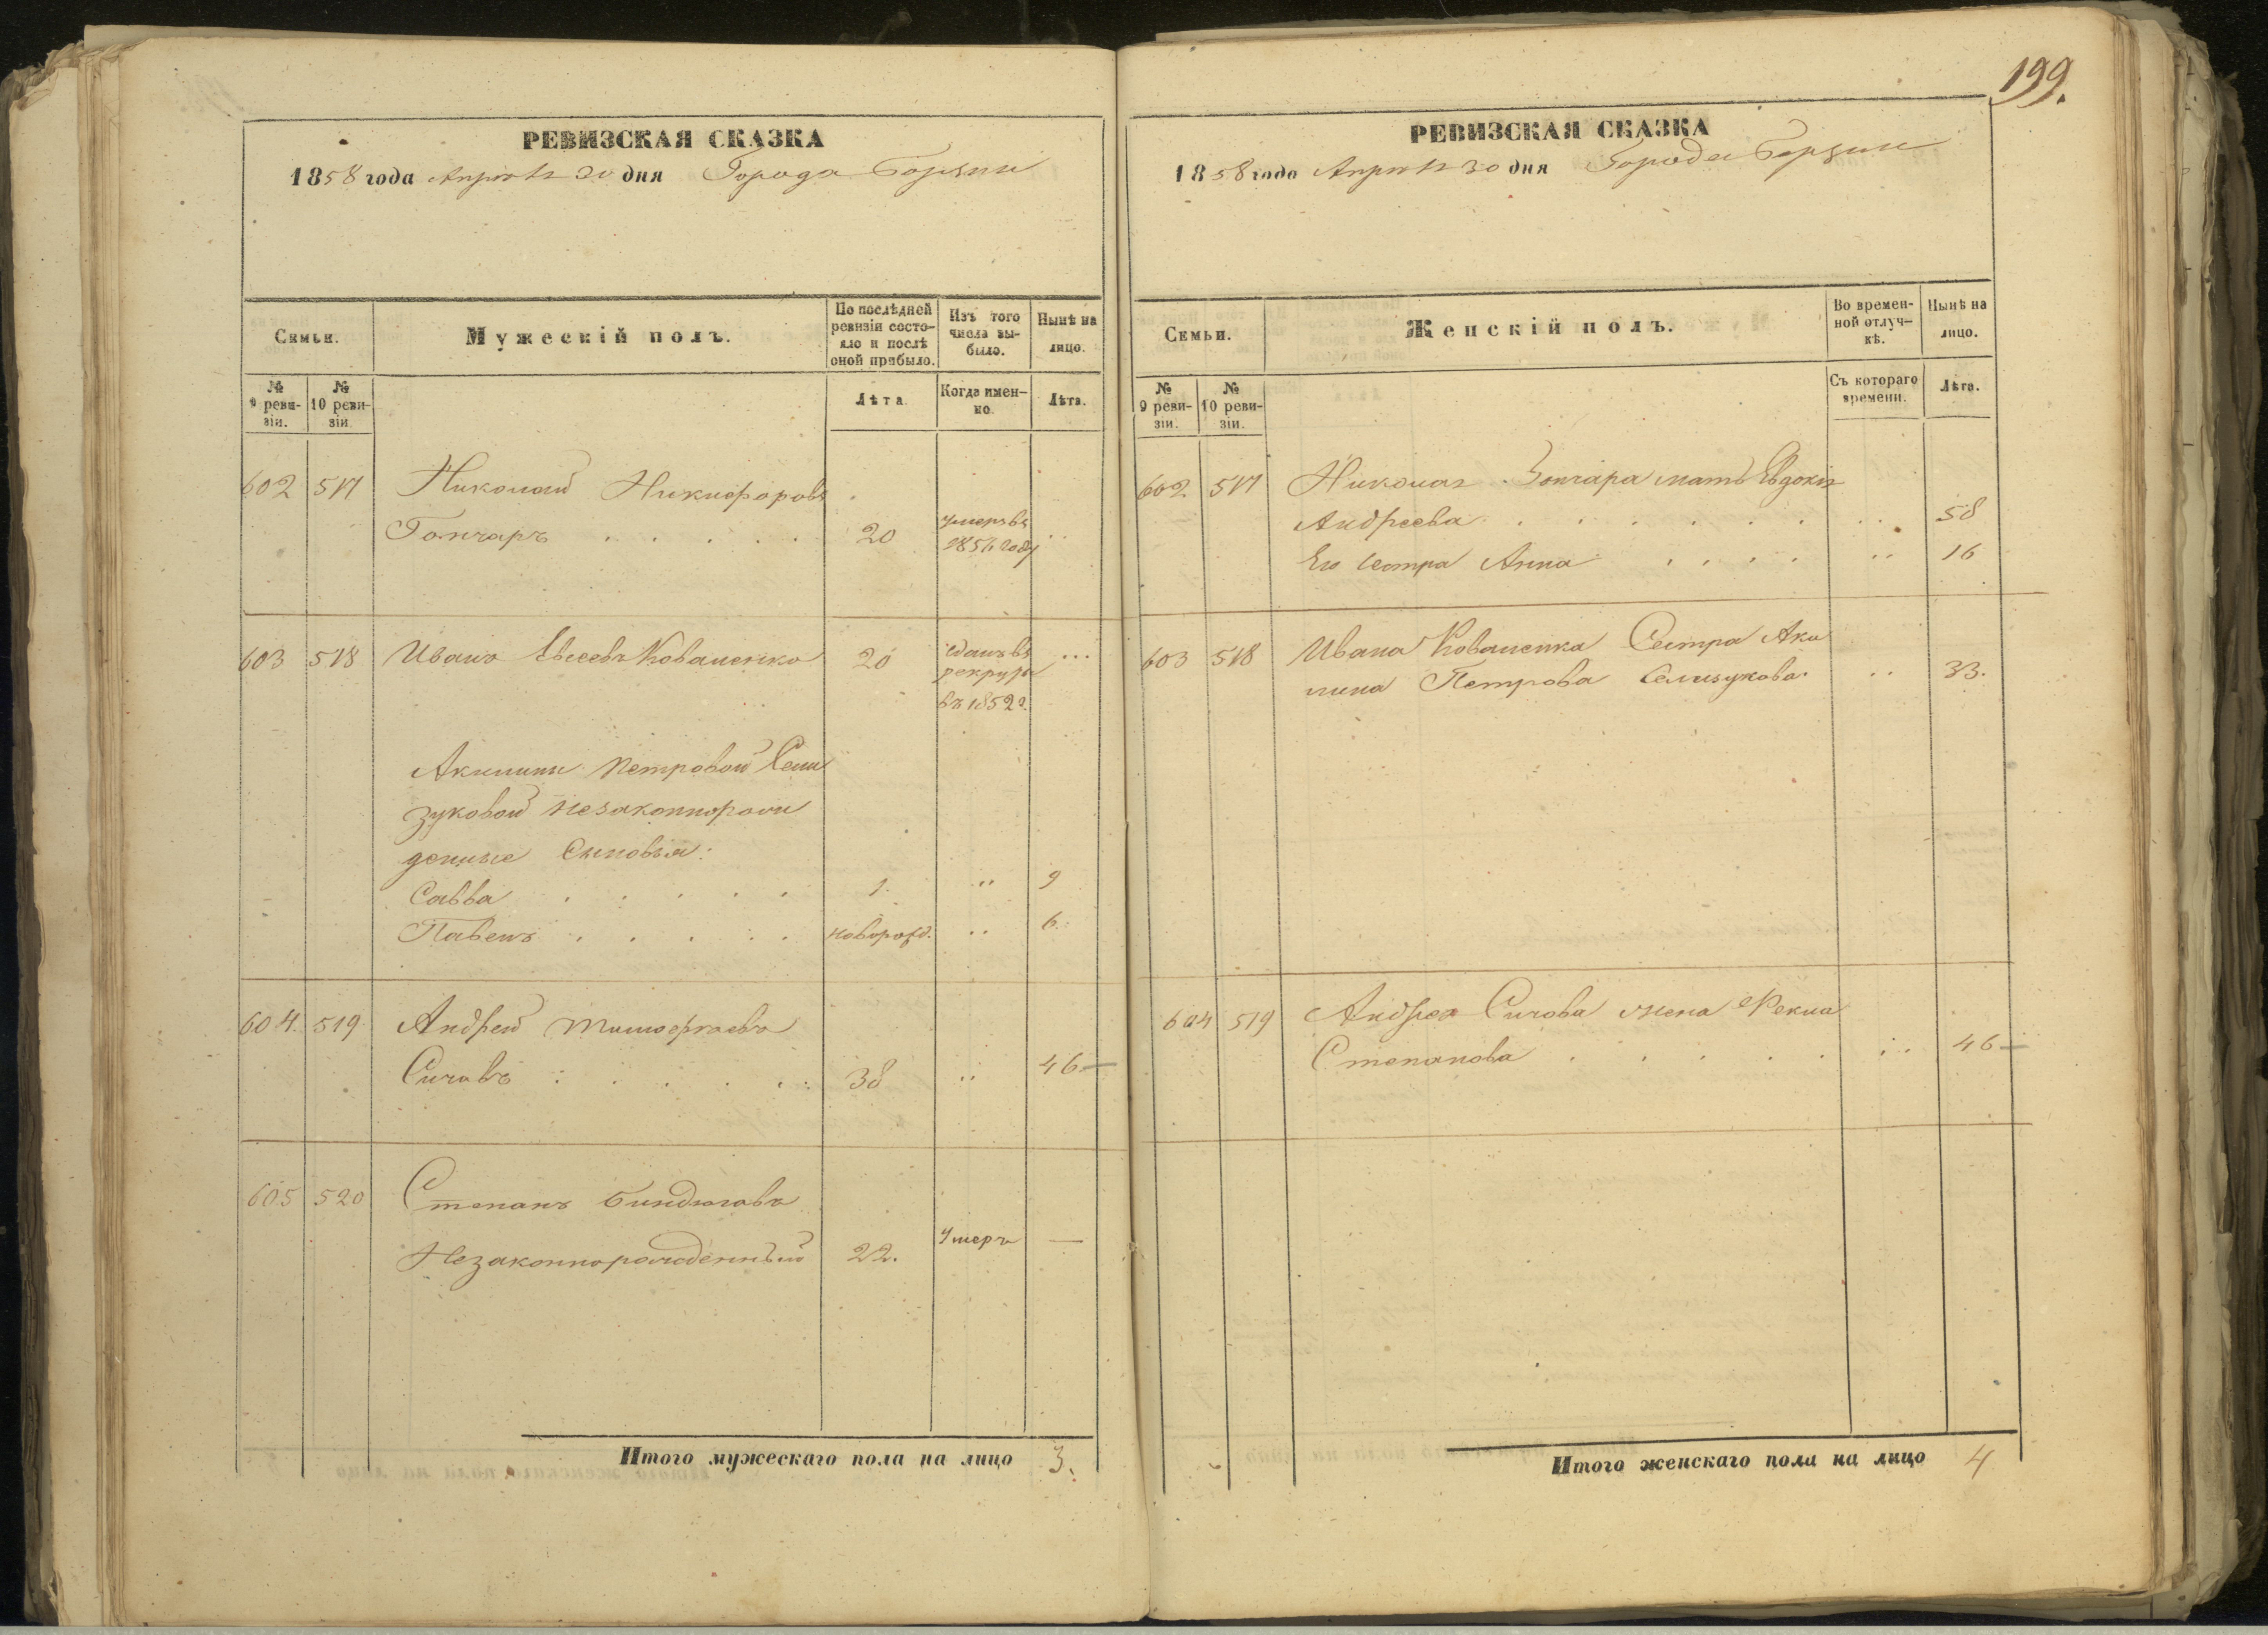 199.
РЕВИЗСКАЯ СКАЗКА
1858 года Апрѣля 30 дня Города Борзны
Семьи.
Мужескій полъ.
По послѣдней ревизіи состояло и послѣ оной прибыло.
Изъ того числа выбыло.
Нынѣ на лицо.
№ 9 ревизіи.
№ 10 ревизіи
Лѣта.
Когда именно.
Лѣта.
602 517 Николай Никифоровъ
Гончаръ 20 умеръ въ 1856 году
603 518 Иванъ Евсеевъ Коваленко 20 сданъ въ рекруты въ 1852 г.
Акилины Петровой Сели
зуковой незаконнорож
денные Сыновья:
Савва 1. " 9
Павелъ новорожд. " 6.
604. 519 Андрей Тимофѣевъ
Сичовъ 38 " 46
605 520 Степанъ Биндюговъ
Незаконнорожденный 22. Умеръ —
Итого мужескаго пола на лицо 3.
РЕВИЗСКАЯ СКАЗКА
1858 года Апрѣля 30 дня Города Борзны
Семьи.
Женскій полъ.
Во временной отлучкѣ.
Нынѣ на лицо.
№ 9 ревизіи.
№ 10 ревизіи.
Съ котораго времени.
Лѣта.
602. 517 Николая Гончара мать Евдокія
Андреева 58
Его сестра Анна " 16
603 518 Ивана Коваленка Сестра Аки
лина Петрова Селизукова. " 33.
604 519 Андрея Сичова жена Фекла
Степанова " 46
Итого женскаго пола на лицо 4